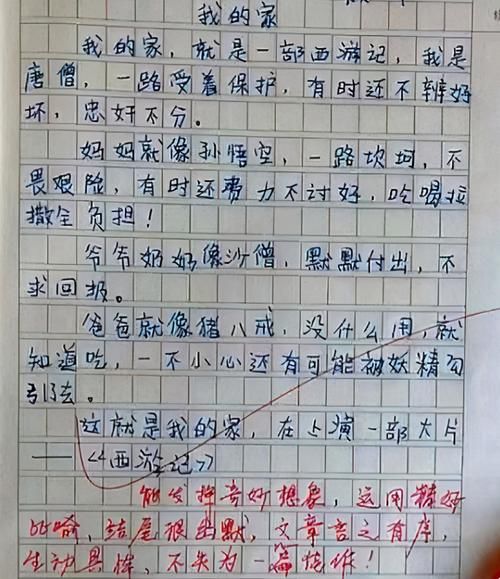 我的家
我的家，就是一部西游记，我是
唐僧，一路受着保护，有时还不辨好
坏，忠奸不分。
妈妈就像孙悟空，一路坎坷，不
畏艰险，有时还费力不讨好，吃喝拉
撒全负担！
爷爷奶奶像沙僧，默默付出，不
求回报。
爸爸就像猪八戒，没什么用，就
知道吃，一不小心还有可能被妖精勾
引去。
这就是我的家，在上演一部大片
——《西游记》
能发挥奇妙想象，运用精妙
比喻，结尾很幽默，文章言之有序，
生动具体，不失为一篇佳作！